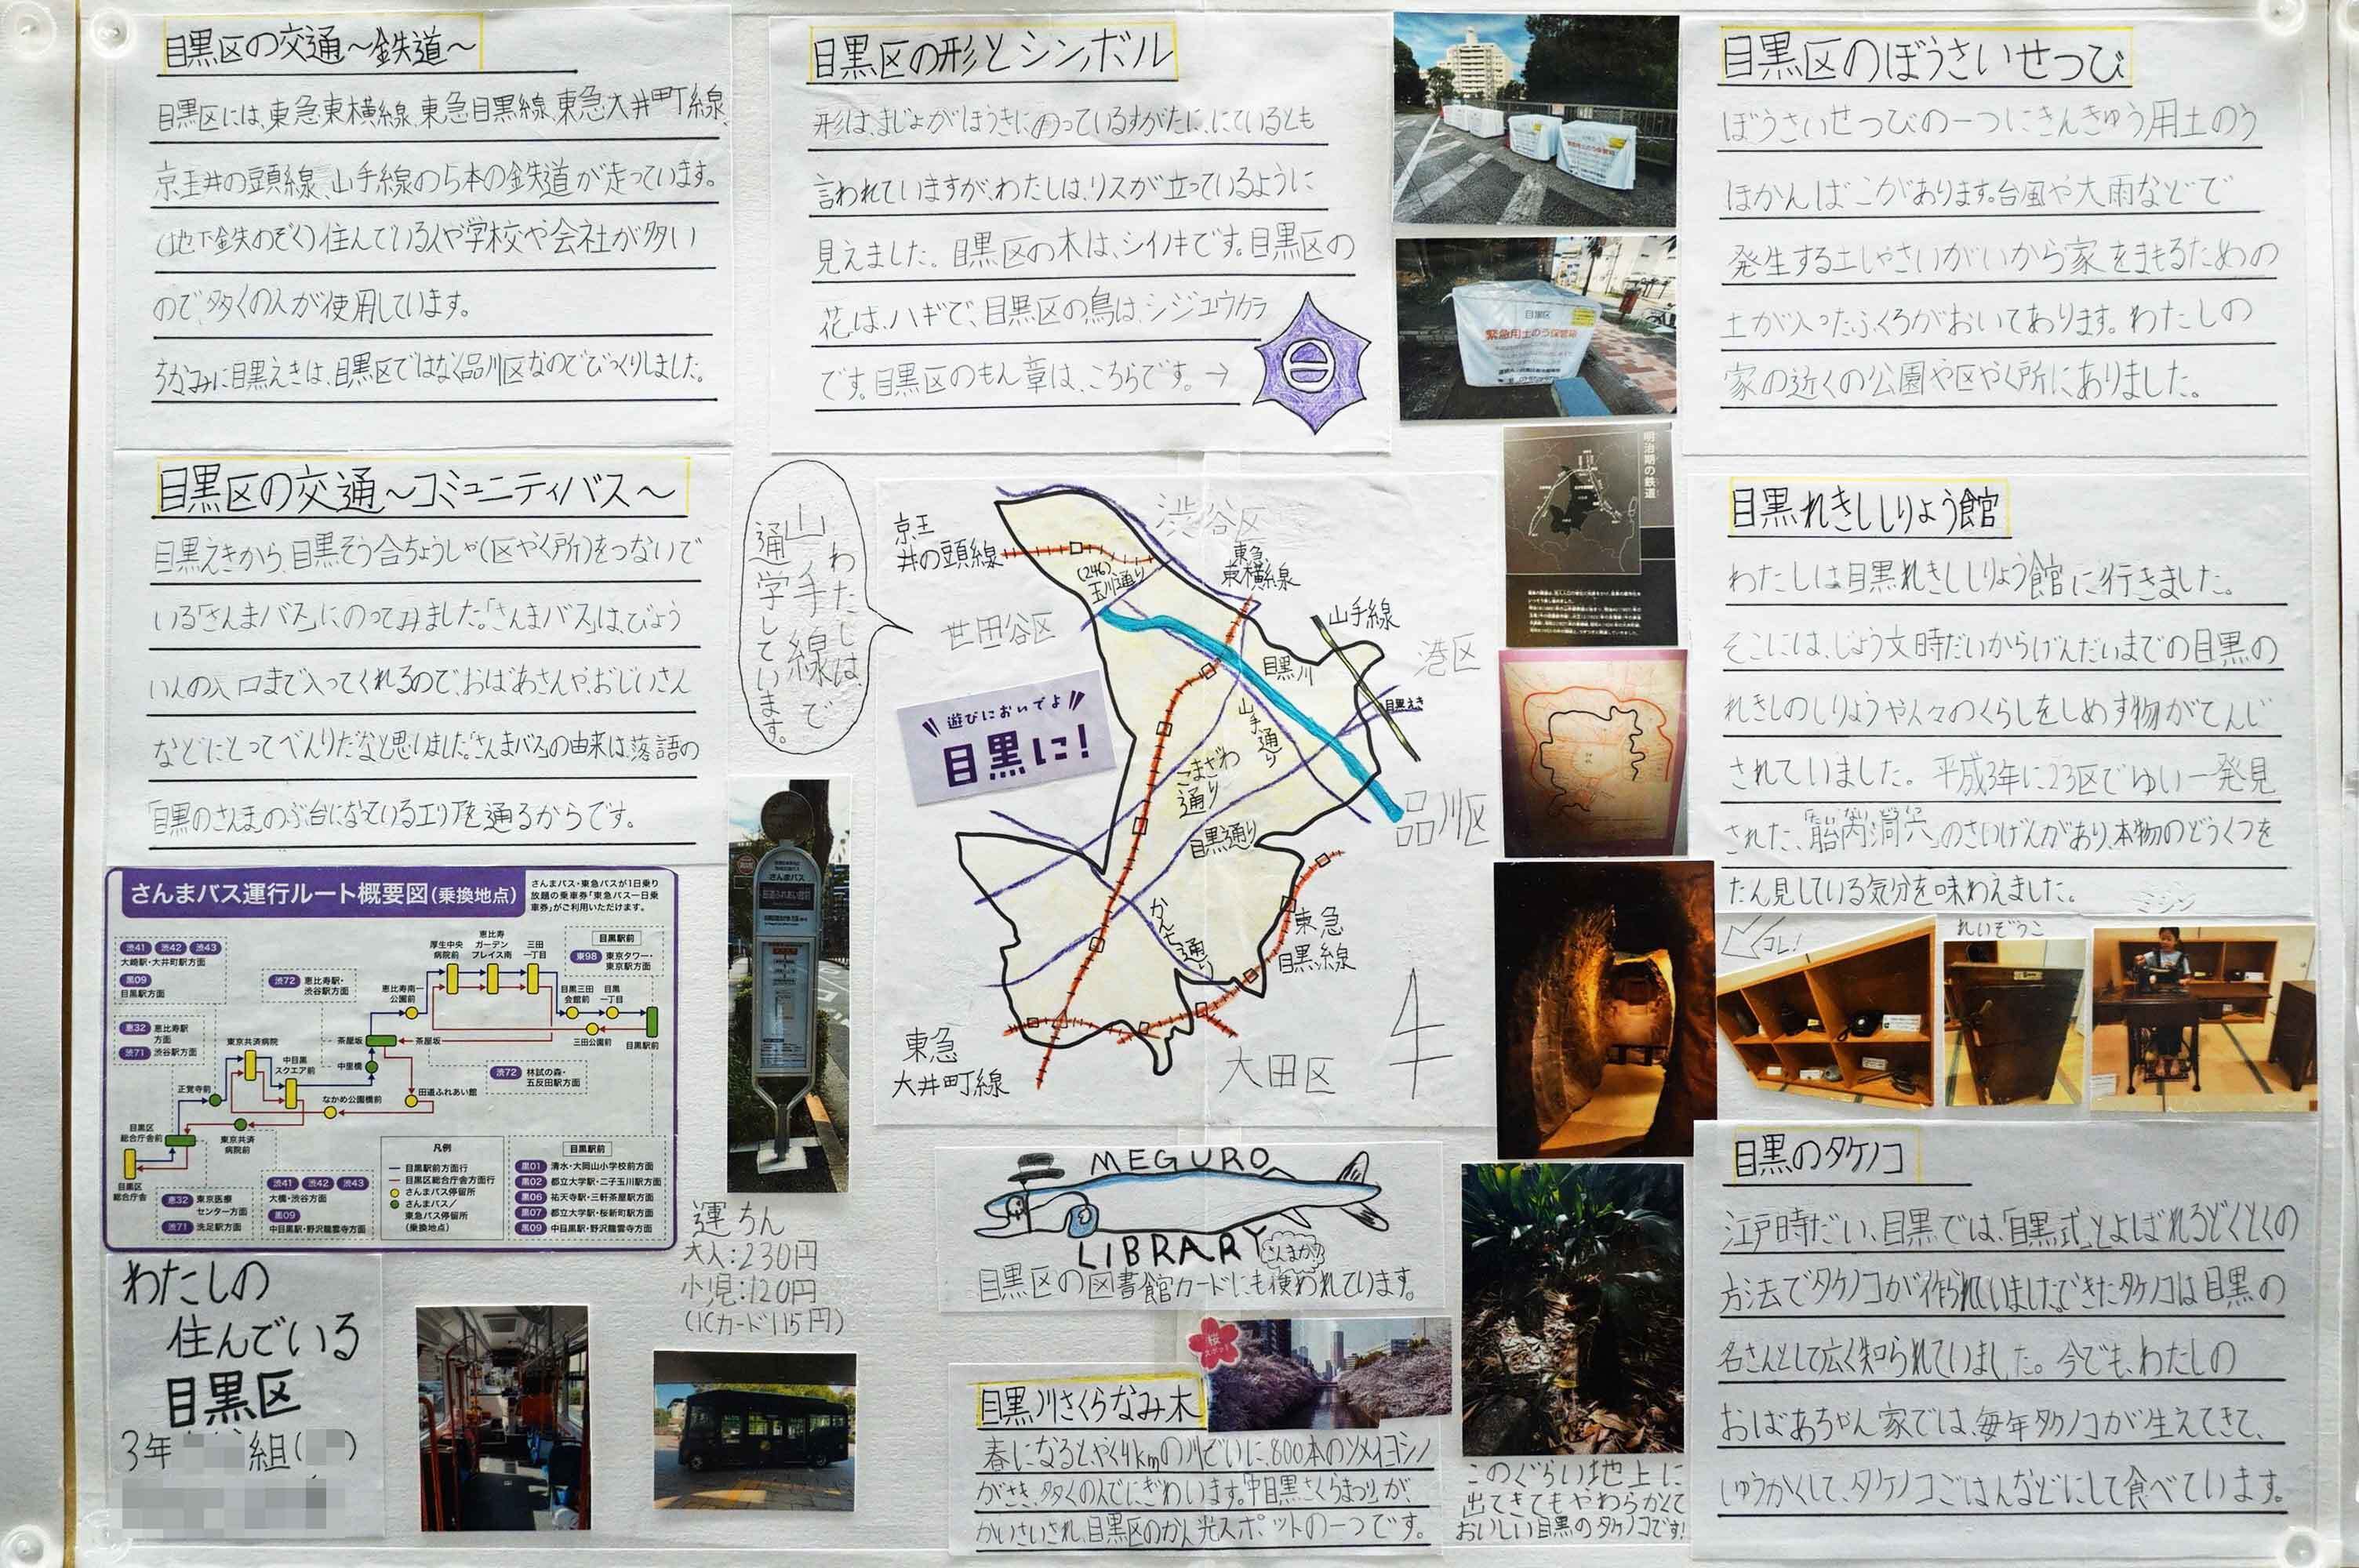 目黒区の交通〜鉄道〜
目黒区には、東急東横線、東急目黒線、東急大井町線、
京王井の頭線、山手線の5本の鉄道が走っています。
(地下鉄のぞく)住んでいる人や学校や会社が多い
ので、多くの人が使用しています。
ちなみに目黒えきは、目黒区ではなく品川区なのでびっくりしました。
目黒区の交通〜コミュニティバス〜
目黒えきから、目黒そう合ちょうしゃ(区やく所)をつないで
いる「さんまバス」にのってみました。「さんまバス」は、びょう
いんの入口まで入ってくれるので、おばあさんや、おじいさん
などにとってべんりだなと思いました。「さんまバス」の由来は、落語の
「目黒のさんま」のぶ台になっているエリアを通るからです。
さんまバス運行ルート概要図(乗換地点)
さんまバス・東急バスが1日乗り
放題の乗車券「東急バス一日乗
車券」がご利用いただけます。
渋41 渋42 渋43
大崎駅・大井町駅方面
黒09
目黒駅方面
恵32 恵比寿駅方面
渋71 渋谷駅方面
渋72 恵比寿駅・渋谷駅方面
厚生中央病院前
恵比寿ガーデンプレイス南
三田一丁目
目黒駅前
東98 東京タワー・東京駅方面
恵比寿南一公園前
目黒三田会館前
目黒一丁目
三田公園前
目黒駅前
茶屋坂
茶屋坂
中里橋
東京共済病院
中目黒スクエア前
正覚寺前
なかめ公園橋前
田道ふれあい館
渋72 林試の森・五反田駅方面
目黒区総合庁舎前
東京共済病院前
目黒区総合庁舎
恵32 東京医療センター方面
渋71 洗足駅方面
渋41 渋42 渋43
大橋・渋谷方面
黒09
中目黒駅・野沢龍雲寺方面
凡例
目黒駅前方面行
目黒区総合庁舎方面行
さんまバス停留所
さんまバス/
東急バス停留所
(乗換地点)
目黒駅前
黒01 清水・大岡山小学校前方面
黒02 都立大学駅・二子玉川駅方面
黒06 祐天寺駅・三軒茶屋駅方面
黒07 都立大学駅・桜新町駅方面
黒09 中目黒駅・野沢龍雲寺方面
わたしの
住んでいる
目黒区
3年
組(
)
さんまバス
運ちん
大人:230円
小児:120円
(ICカード115円)
目黒区の形とシンボル
形は、まじょがほうきにのっているすがたに、にているとも
言われていますが、わたしは、リスが立っているように
見えました。目黒区の木は、シイノキです。目黒区の
花は、ハギで、目黒区の鳥は、シジュウカラ
です。目黒区のもん章は、こちらです。→
わたしは、
山手線で
通学しています。
京王
井の頭線
渋谷区
(246)
玉川通り
東急
東横線
山手線
世田谷区
目黒川
港区
目黒えき
遊びにおいでよ
目黒に!
山手通り
こまざわ
通り
目黒通り
品川区
かん七通り
東急
目黒線
東急
大井町線
大田区
MEGURO
LIBRARY
さんまかな?
目黒区の図書館カードにも使われています。
桜
スポット
目黒川さくらなみ木
春になるとやく4kmの川ぞいに、800本のソメイヨシノ
がさき、多くの人でにぎわいます。「中目黒さくらまつり」が、
かいさいされ、目黒区のかん光スポットの一つです。
目黒区
緊急用土のう保管箱
明治期の鉄道
このぐらい地上に
出てきてもやわらかくて
おいしい目黒のタケノコです!
目黒区のぼうさいせつび
ぼうさいせつびの一つにきんきゅう用土のう
ほかんばこがあります。台風や大雨などで
発生する土しゃさいがいから家をまもるための
土が入ったふくろがおいてあります。わたしの
家の近くの公園や区やく所にありました。
目黒れきししりょう館
わたしは目黒れきししりょう館に行きました。
そこには、じょう文時だいからげんだいまでの目黒の
れきしのしりょうや人々のくらしをしめす物がてんじ
されていました。平成3年に23区でゆい一発見
された、「胎内洞穴」のさいげんがあり、本物のどうくつを
たん見している気分を味わえました。
コレ!
れいぞうこ
ミシン
目黒のタケノコ
江戸時だい、目黒では、「目黒式」とよばれるどくとくの
方法でタケノコが作られていました。できたタケノコは目黒の
名さんとして広く知られていました。今でも、わたしの
おばあちゃん家では、毎年タケノコが生えてきて、
しゅうかくして、タケノコごはんなどにして食べています。